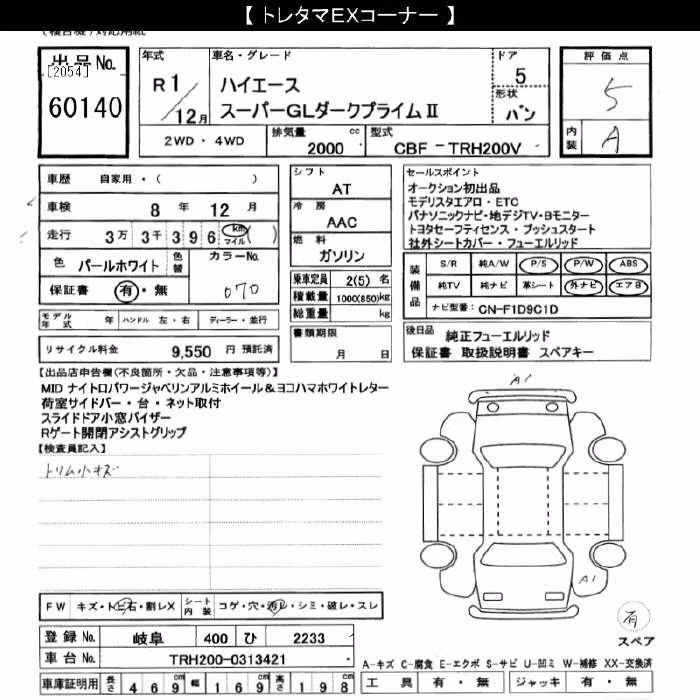 【 トレタマEXコーナー 】
出品No.
[2054]
60140
年式
R 1 / 12月
車名・グレード
ハイエース
スーパーGLダークプライムⅡ
ドア
5
形状
バン
2WD ・ 4WD
排気量
2000 cc
型式
CBF - TRH200V
評価点
5
内装
A
車歴 自家用・( )
車検 8 年 12 月
走行 3万 3千 3 9 6 km マイル ( )
色 パールホワイト 色替 カラーNo. 070
保証書 有・無
モデル年式 年 ハンドル 左・右 ディーラー・並行
リサイクル料金 9,550 円 預託済
シフト
AT
冷房
AAC
燃料
ガソリン
乗車定員 2(5) 名
積載量 1000(850)kg
総重量 kg
書類期限
月 日
セールスポイント
オークション初出品
モデリスタエアロ・ETC
パナソニックナビ・地デジTV・Bモニター
トヨタセーフティセンス・プッシュスタート
社外シートカバー・フューエルリッド
装備品
S/R 純A/W P/S P/W ABS
純TV 純ナビ 革シート 外ナビ エアB
ナビ型番: CN-F1D9C1D
後日品 純正フューエルリッド
保証書 取扱説明書 スペアキー
【出品店申告欄(不良箇所・欠品・注意事項等)】
MID ナイトロパワージャベリンアルミホイール&ヨコハマホワイトレター
荷室サイドバー・台・ネット取付
スライドドア小窓バイザー
Rゲート開閉アシストグリップ
【検査員記入】
トリム小キズ
A1
A1
有
スペア
FW キズ・トビ石・割レX シート内装 コゲ・穴・汚レ・シミ・破レ・スレ
登録 No. 岐阜 400 ひ 2233
車台 No. TRH200-0313421
車庫証明用 長さ 4 6 9 cm 幅 1 6 9 cm 高さ 1 9 8 cm
A-キズ C-腐食 E-エクボ S-サビ U-凹ミ W-補修 XX-交換済
工具 有・無 ジャッキ 有・無